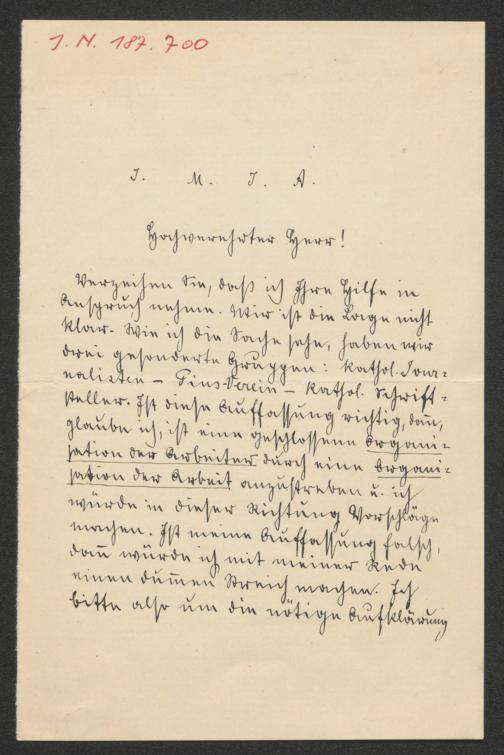 J. N. 187.700
J. M. J. A.
Hochverehrter Herr!
Verzeihen Sie, daß ich Ihre Hilfe in
Anspruch nehme. Mir ist die Lage nicht
klar. Wie ich die Sache sehe, haben wir
drei gesonderte Gruppen: kathol. Jour-
nalisten – Pius-Verein – kathol. Schrift-
steller. Ist diese Auffassung richtig, dann,
glaube ich, ist eine geschlossene Organi-
sation der Arbeiter durch eine Organi-
sation der Arbeit anzustreben u. ich
würde in dieser Richtung Vorschläge
machen. Ist meine Auffassung falsch,
dann würde ich mit meiner Rede
einen dummen Streich machen. Ich
bitte also um die nötige Aufklärung